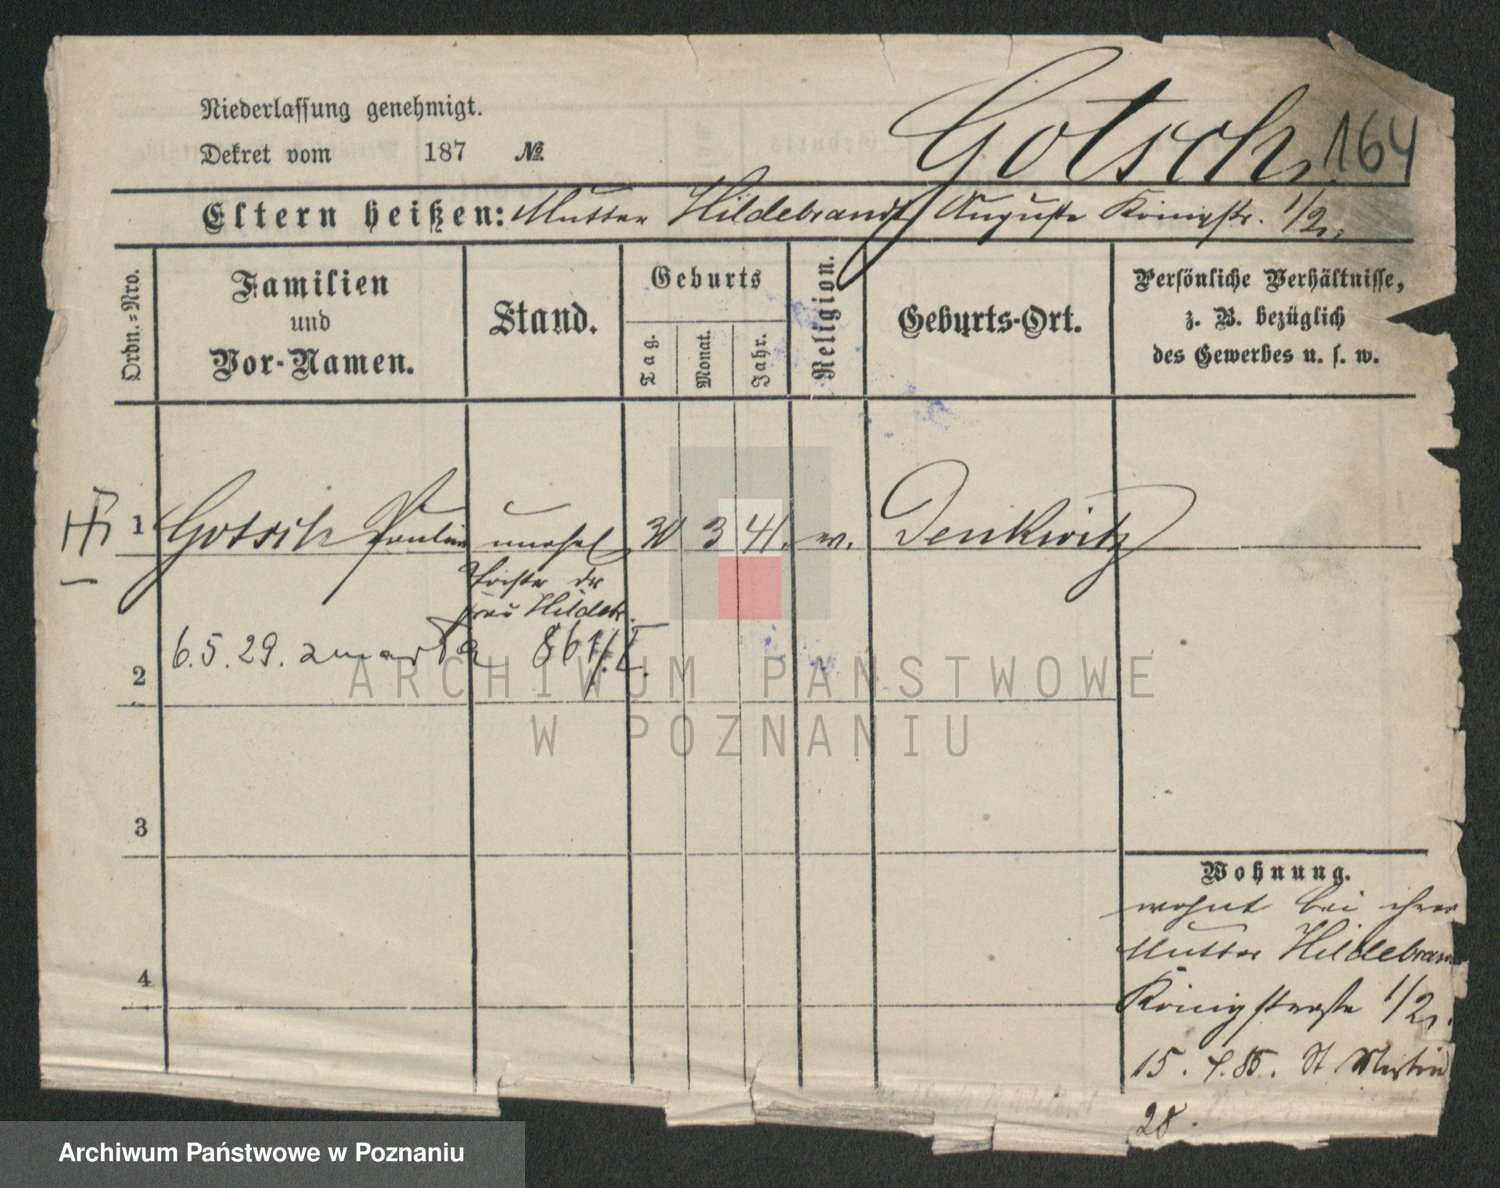 Niederlassung genehmigt.
Dekret vom 187 №
Gotsch 164
Eltern heißen: Mutter Hildebrandt Auguste Königstr. 1/2.
Ordn.=Nro.
Familien
und
Vor-Namen.
Stand.
Geburts
Tag.
Monat.
Jahr.
Religion.
Geburts-Ort.
Persönliche Verhältnisse,
z. B. bezüglich
des Gewerbes u. s. w.
1 Gotsch Pauline unehel. 30 3 41. w. Denkwitz
Tochter der
Frau Hildebr.
2 6.5.29. zmarła 861/I.
3
4
Wohnung.
wohnt bei ihrer
Mutter Hildebrandt
Königstraße 1/2.
15. 4. 85. St Martin
28.
ARCHIWUM PAŃSTWOWE
W POZNANIU
Archiwum Państwowe w Poznaniu